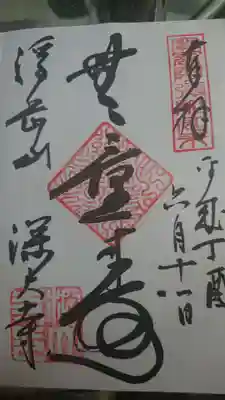 奉拝
平成丁酉
六月十一日
無量壽
浮岳山 深大寺